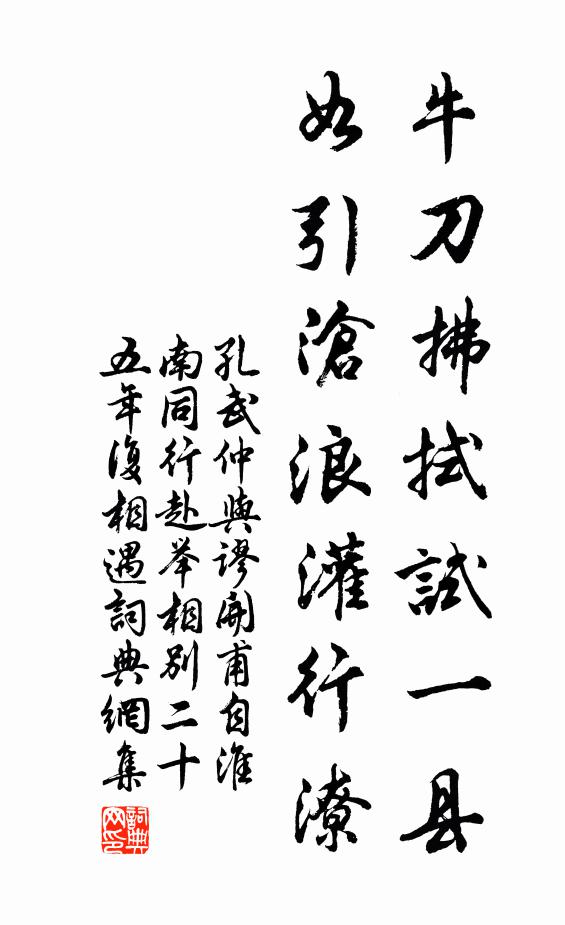 牛刀拂拭試一县
如引滄浪灌行潦
孔武仲與謬開甫自淮
南同行赴举相别二十
五年復相遇詞典網集
詞典网印